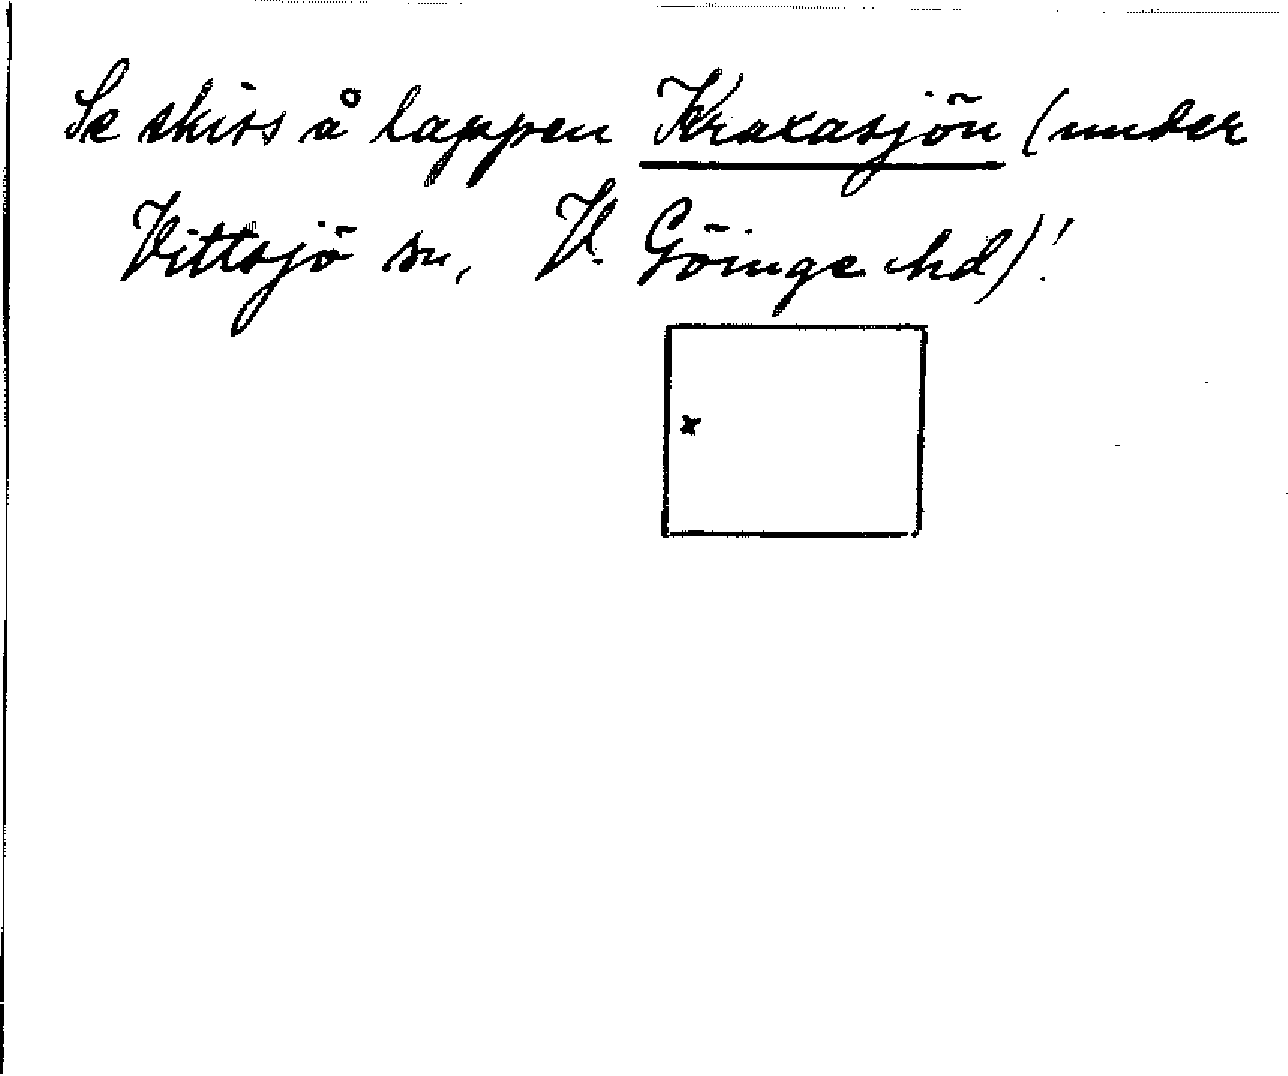 Se skiss å lappen Kraxasjön (under
Vittsjö sn, V. Göinge hd)!
x